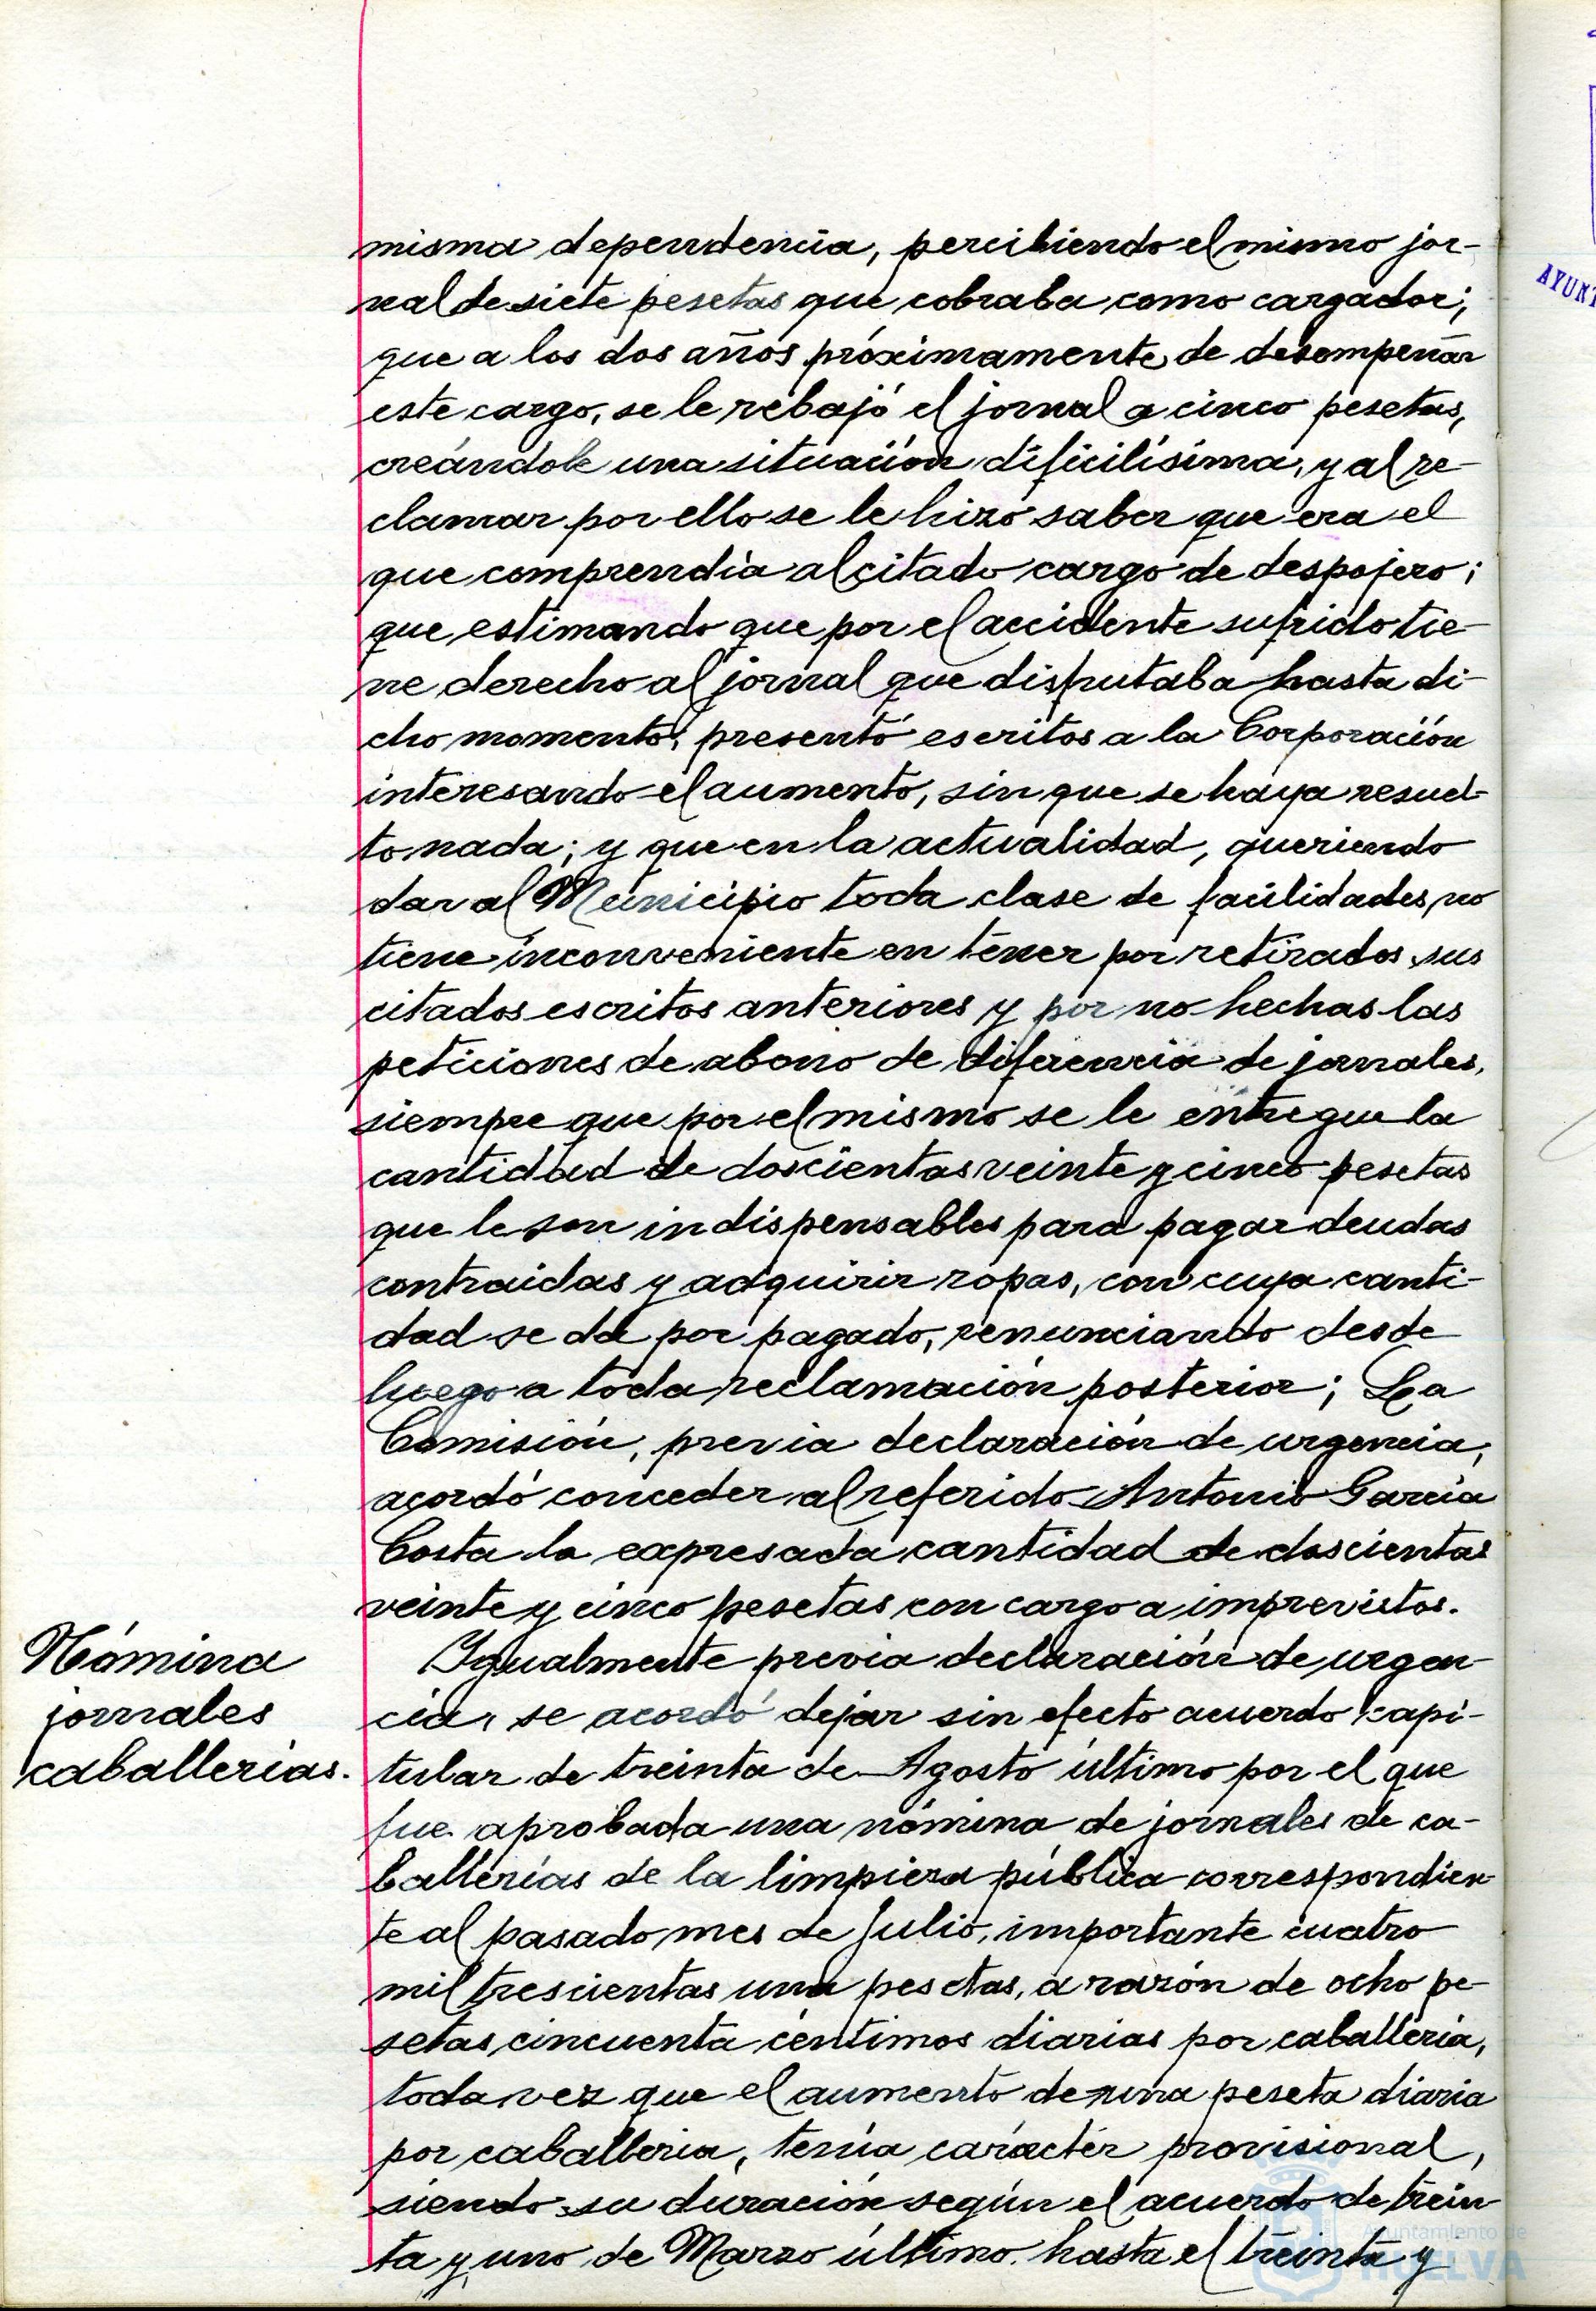 misma dependencia, percibiendo el mismo jor-
nal de siete pesetas que cobraba como cargador;
que a los dos años próximamente de desempeñar
este cargo, se le rebajó el jornal a cinco pesetas,
creándole una situación dificilísima, y al re-
clamar por ello se le hizo saber que era el
que comprendía al citado cargo de despojero;
que estimando que por el accidente sufrido tie-
ne derecho al jornal que disfrutaba hasta di-
cho momento, presentó escritos a la Corporación
interesando el aumento, sin que se haya resuel-
to nada; y que en la actualidad, queriendo
dar al Municipio toda clase de facilidades, no
tiene inconveniente en tener por retirados sus
citados escritos anteriores y por no hechas las
peticiones de abono de diferencia de jornales,
siempre que por el mismo se le entregue la
cantidad de doscientas veinte y cinco pesetas
que le son indispensables para pagar deudas
contraidas y adquirir ropas, con cuya canti-
dad se da por pagado, renunciando desde
luego a toda reclamación posterior; La
Comisión, previa declaración de urgencia,
acordó conceder al referido Antonio García
Costa la expresada cantidad de doscientas
veinte y cinco pesetas con cargo a imprevistos.
Nómina
jornales
caballerías.
Igualmente previa declaración de urgen-
cia, se acordó dejar sin efecto acuerdo capi-
tular de treinta de Agosto último por el que
fue aprobada una nómina de jornales de ca-
ballerías de la limpieza pública correspondien-
te al pasado mes de Julio, importante cuatro
mil trescientas una pesetas, a razón de ocho pe-
setas cincuenta céntimos diarias por caballería,
toda vez que el aumento de una peseta diaria
por caballeria, tenía carácter provisional,
siendo su duración según el acuerdo de trein-
ta y uno de Marzo último hasta el treinta y
AYUNT
Ayuntamiento de
HUELVA